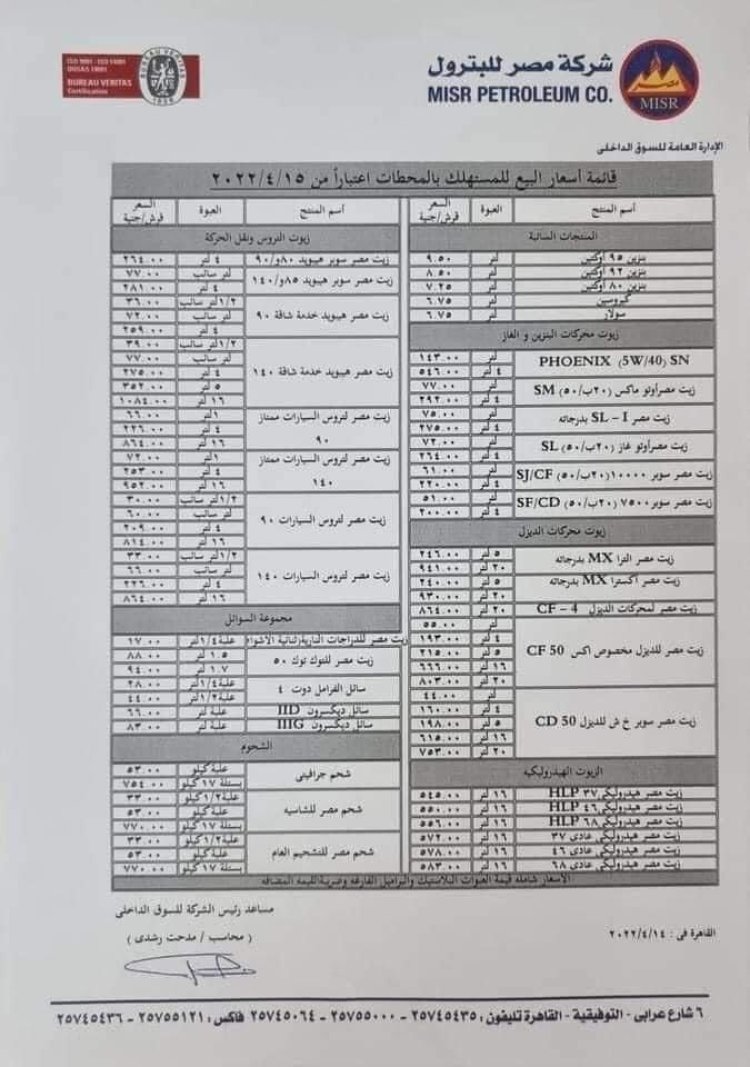 ISO 9001 - ISO 14001
OHSAS 18001
BUREAU VERITAS
Certification
BUREAU VERITAS
1828
شركة مصر للبترول
MISR PETROLEUM CO.
مصر
MISR
الإدارة العامة للسوق الداخلى
قائمة أسعار البيع للمستهلك بالمحطات اعتباراً من ٢٠٢٢/٤/١٥
اسم المنتج العبوة السعر قرش/جنية
المنتجات السائبة
بنزين ٩٥ أوكتين لتر ٩.٥٠
بنزين ٩٢ أوكتين لتر ٨.٥٠
بنزين ٨٠ أوكتين لتر ٧.٢٥
كيروسين لتر ٦.٧٥
سولار لتر ٦.٧٥
زيوت محركات البنزين و الغاز
PHOENIX (5W/40) SN لتر ١٤٣.٠٠
٤ لتر ٥٤٦.٠٠
زيت مصرأوتو ماكس (٢٠ب/٥٠) SM لتر ٧٧.٠٠
٤ لتر ٢٩٢.٠٠
زيت مصر SL – I بدرجاته لتر ٧٥.٠٠
٤ لتر ٢٧٥.٠٠
زيت مصرأوتو غاز (٢٠ب/٥٠) SL لتر ٧٢.٠٠
٤ لتر ٢٦٤.٠٠
زيت مصر سوبر ١٠٠٠٠ (٢٠ب/٥٠) SJ/CF لتر ٦١.٠٠
٤ لتر ٢٢٠.٠٠
زيت مصر سوبر ٧٥٠٠ (٢٠ب/٥٠) SF/CD لتر ٥١.٠٠
٤ لتر ٢٠٠.٠٠
زيوت محركات الديزل
زيت مصر الترا MX بدرجاته ٥ لتر ٢٤٦.٠٠
٢٠ لتر ٩٤١.٠٠
زيت مصر أكسترا MX بدرجاته ٥ لتر ٢٤٠.٠٠
٢٠ لتر ٩٣٠.٠٠
زيت مصر لمحركات الديزل CF – 4 ٢٠ لتر ٨٦٤.٠٠
زيت مصر للديزل مخصوص اكس CF 50 لتر ٥٥.٠٠
٤ لتر ١٩٣.٠٠
٥ لتر ٢١٥.٠٠
١٦ لتر ٦٦٦.٠٠
٢٠ لتر ٨٠٣.٠٠
زيت مصر سوبر خ ش للديزل CD 50 لتر ٤٤.٠٠
٤ لتر ١٦٠.٠٠
٥ لتر ١٩٨.٠٠
١٦ لتر ٦١٥.٠٠
٢٠ لتر ٧٥٣.٠٠
الزيوت الهيدروليكية
زيت مصر هيدروليكى ٣٧ HLP ١٦ لتر ٥٤٥.٠٠
زيت مصر هيدروليكى ٤٦ HLP ١٦ لتر ٥٥٠.٠٠
زيت مصر هيدروليكى ٦٨ HLP ١٦ لتر ٥٥٦.٠٠
زيت مصر هيدروليكى عادى ٣٧ ١٦ لتر ٥٧٢.٠٠
زيت مصر هيدروليكى عادى ٤٦ ١٦ لتر ٥٧٨.٠٠
زيت مصر هيدروليكى عادى ٦٨ ١٦ لتر ٥٨٣.٠٠
اسم المنتج العبوة السعر قرش/جنية
زيوت التروس ونقل الحركة
زيت مصر سوبر هيبويد ٨٠و/٩٠ ٤ لتر ٢٦٤.٠٠
زيت مصر سوبر هيبويد ٨٥و/١٤٠ لتر سائب ٧٧.٠٠
٤ لتر ٢٨١.٠٠
زيت مصر هيبويد خدمة شاقة ٩٠ ١/٢لتر سائب ٣٦.٠٠
لتر سائب ٧٢.٠٠
٤ لتر ٢٥٩.٠٠
زيت مصر هيبويد خدمة شاقة ١٤٠ ١/٢لتر سائب ٣٩.٠٠
لتر سائب ٧٧.٠٠
٤ لتر ٢٧٥.٠٠
٥ لتر ٣٥٢.٠٠
١٦ لتر ١٠٨٤.٠٠
زيت مصر لتروس السيارات ممتاز ٩٠ ١لتر ٦٦.٠٠
٤ لتر ٢٢٦.٠٠
١٦ لتر ٨٦٤.٠٠
زيت مصر لتروس السيارات ممتاز ١٤٠ ١لتر ٧٢.٠٠
٤ لتر ٢٥٣.٠٠
١٦ لتر ٩٥٢.٠٠
زيت مصر لتروس السيارات ٩٠ ١/٢لتر سائب ٣٠.٠٠
لتر سائب ٦٠.٠٠
٤ لتر ٢٠٩.٠٠
١٦ لتر ٨١٤.٠٠
زيت مصر لتروس السيارات ١٤٠ ١/٢لتر سائب ٣٣.٠٠
لتر سائب ٦٦.٠٠
٤ لتر ٢٢٦.٠٠
١٦ لتر ٨٦٤.٠٠
مجموعة السوائل
زيت مصر للدراجات النارية(ثنائية الاشواط علبة١/٤لتر ١٧.٠٠
زيت مصر للتوك توك ٥٠ ١.٥ لتر ٨٨.٠٠
١.٧ لتر ٩٤.٠٠
سائل الفرامل دوت ٤ علبة١/٤لتر ٢٨.٠٠
علبة١/٢لتر ٤٤.٠٠
سائل ديكسرون IID علبة لتر ٦٦.٠٠
سائل ديكسرون IIIG علبة لتر ٨٣.٠٠
الشحوم
شحم جرافيتى علبة كيلو ٥٣.٠٠
بستلة ١٧ كيلو ٧٥٤.٠٠
شحم مصر للشاسيه علبة١/٢ كيلو ٣٣.٠٠
علبة كيلو ٥٣.٠٠
بستلة ١٧ كيلو ٧٧٠.٠٠
شحم مصر للتشحيم العام علبة١/٢ كيلو ٣٣.٠٠
علبة كيلو ٥٣.٠٠
بستلة ١٧ كيلو ٧٧٠.٠٠
الأسعار شاملة قيمة العبوات البلاستيك والبراميل الفارغة وضريبة القيمة المضافة
القاهرة فى : ٢٠٢٢/٤/١٤
مساعد رئيس الشركة للسوق الداخلى
( محاسب / مدحت رشدى )
٦ شارع عرابى - التوفيقية - القاهرة تليفون : ٢٥٧٤٥٤٣٥ - ٢٥٧٥٥٠٠٠ - ٢٥٧٤٥٠٦٤ فاكس : ٢٥٧٥٥١٢١ - ٢٥٧٤٥٤٣٦